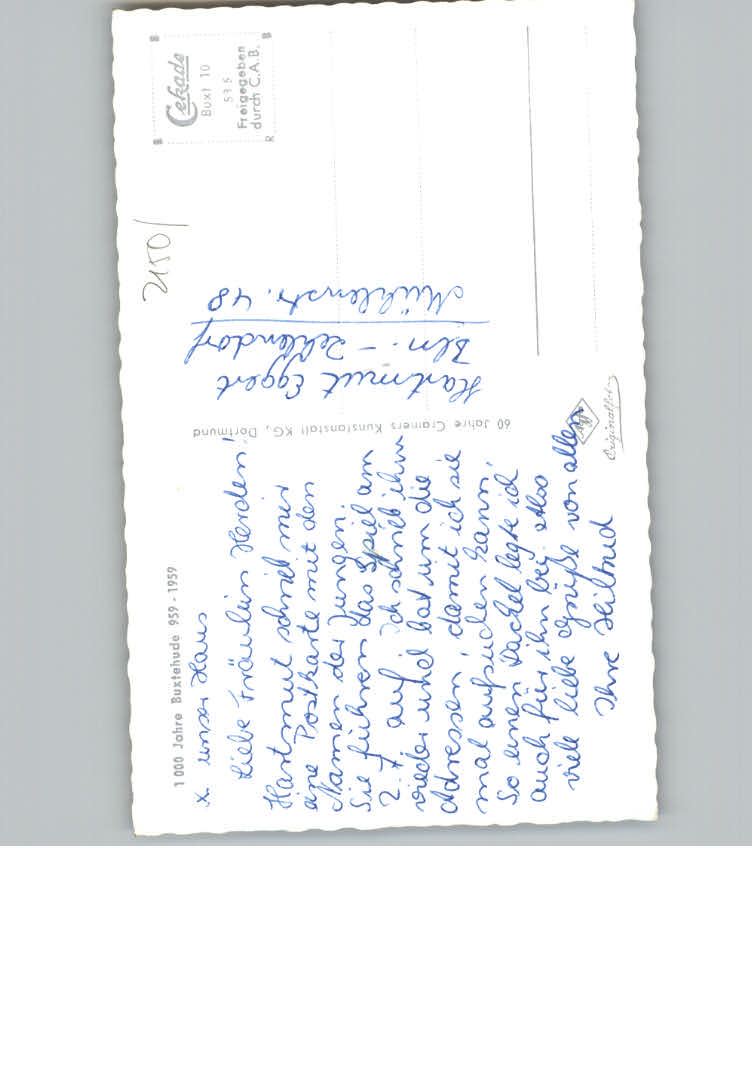 1000 Jahre Buxtehude 959 - 1959
x. unser Haus
Liebe Fräulein Herden!
Hartmut schrieb mir
eine Postkarte mit den
Namen der Jungen.
Sie führen das Spiel am
2. 7 auf. Ich schrieb ihm
wieder und bat um die
Adressen, damit ich sie
mal aufsuchen kann.
So einen Dackel legte ich
auch für ihn bei. Also
viele liebe Grüße von allen
Ihre Hiltrud
60 Jahre Cramers Kunstanstalt KG, Dortmund
Hartmut Eggert
Bln. - Zehlendorf
Mühlenstr. 48
2150/
Cekade
Buxt 10
Freigegeben
durch C.A.B.
R
Agfa
Originalfoto